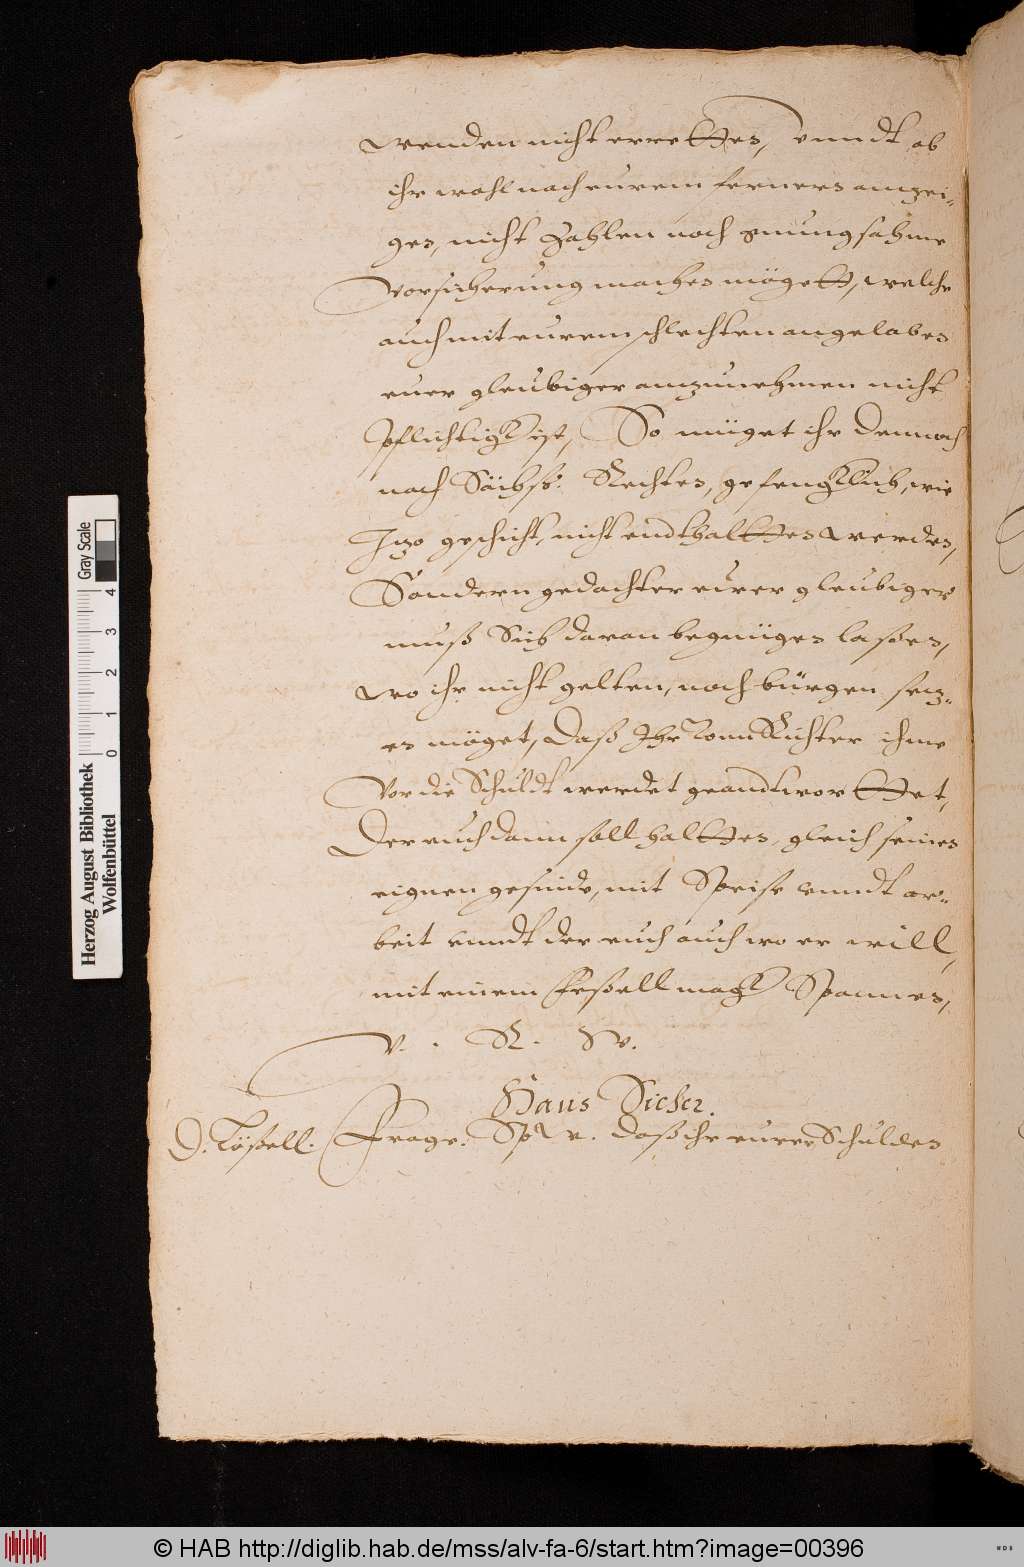 wenden nicht errettes, vnndt ob
ihr wohl nach eurem ferners anzei-
ges, nicht Zahlen noch gnungsahme
Vorsicherung maches möget, welche
auch mit eurem schlechten angelabes
euer gleubiger anzunehmen nicht
pflichtigk ist, So müget ihr dennoch
nach Sächß: Rechtes, gefengklich, wie
Izo geschicht, nicht endthaltes werdes,
Sondern gedachter eurer gleubiger
muß Sich daran begnüges laßes,
wo ihr nicht gelten, noch bürgen sez-
es möget, Daß Ihr vom Richter ihme
Vor die Schuldt werdet geandtwortet,
Der euch dann soll haltes, gleich seines
eignen gesinde, mit Speise vnndt ar-
beit vnndt der euch auch wo er will,
mit einem Feßell magk Spannes,
V. R. W.
Hans Sieher.
D: Lößell. Frage. Daß ihr eurer Schuldes
Herzog August Bibliothek
Wolfenbüttel
0 1 2 3 4 Gray Scale
© HAB http://diglib.hab.de/mss/alv-fa-6/start.htm?image=00396